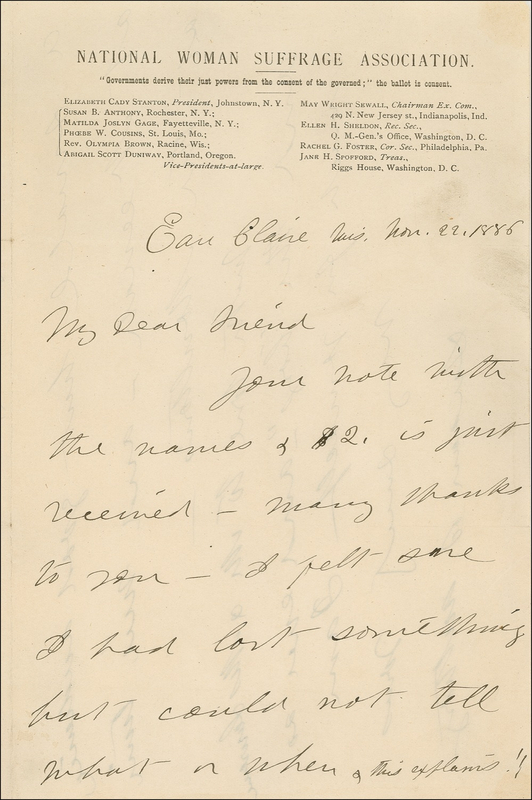 NATIONAL WOMAN SUFFRAGE ASSOCIATION.
"Governments derive their just powers from the consent of the governed;" the ballot is consent.
ELIZABETH CADY STANTON, President, Johnstown, N. Y.
SUSAN B. ANTHONY, Rochester, N. Y.;
MATILDA JOSLYN GAGE, Fayetteville, N. Y.;
PHŒBE W. COUSINS, St. Louis, Mo.;
REV. OLYMPIA BROWN, Racine, Wis.;
ABIGAIL SCOTT DUNIWAY, Portland, Oregon.
Vice-Presidents-at-large.
MAY WRIGHT SEWALL, Chairman Ex. Com.,
429 N. New Jersey st., Indianapolis, Ind.
ELLEN H. SHELDON, Rec. Sec.,
Q. M.-Gen's. Office, Washington, D. C.
RACHEL G. FOSTER, Cor. Sec., Philadelphia, Pa.
JANE H. SPOFFORD, Treas.,
Riggs House, Washington, D. C.
Eau Claire Wis. Nov. 22, 1886
My Dear Friend
Your note with
the names & $2. is just
received – many thanks
to you – I felt sure
I had lost something
but could not tell
what or when & this explains it